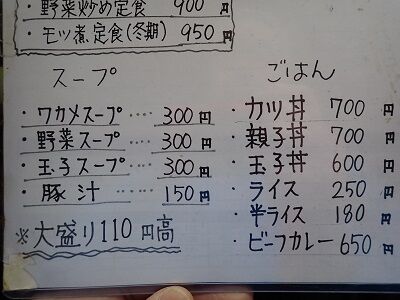 ・野菜炒め定食 900円
・モツ煮定食(冬期) 950円
スープ
・ワカメスープ‥‥ 300円
・野菜スープ‥‥ 300円
・玉子スープ‥‥ 300円
・豚汁‥‥‥ 150円
※大盛り110円高
ごはん
・カツ丼 700円
・親子丼 700円
・玉子丼 600円
・ライス 250円
・半ライス 180円
・ビーフカレー 650円